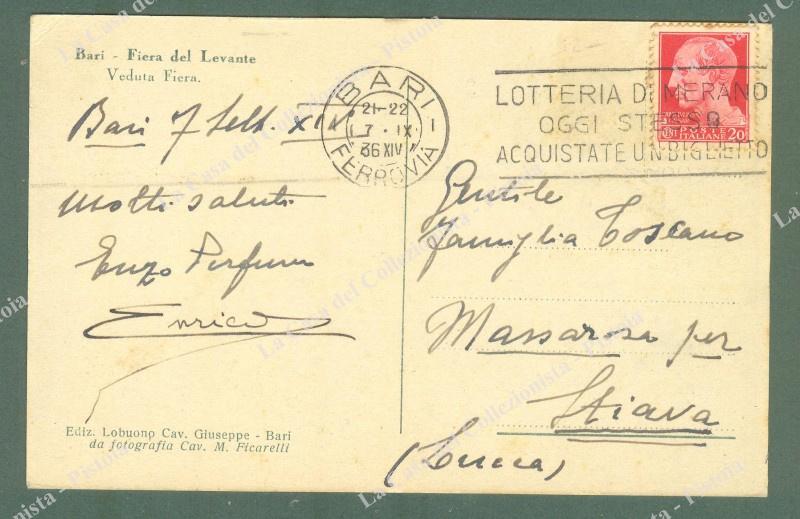 Bari - Fiera del Levante
Veduta Fiera.
Bari 7 Sett. XIV
Molti saluti
Enzo
Enrico
Ediz. Lobuono Cav. Giuseppe - Bari
da fotografia Cav. M. Ficarelli
BARI
21-22
7 · IX
36 XIV
FERROVIA
LOTTERIA DI MERANO
OGGI STESSO
ACQUISTATE UN BIGLIETTO
POSTE
ITALIANE
20
Gentile
famiglia Toscano
Massarosa per
Stiava
(Lucca)
La Casa del Collezionista - Pistoia